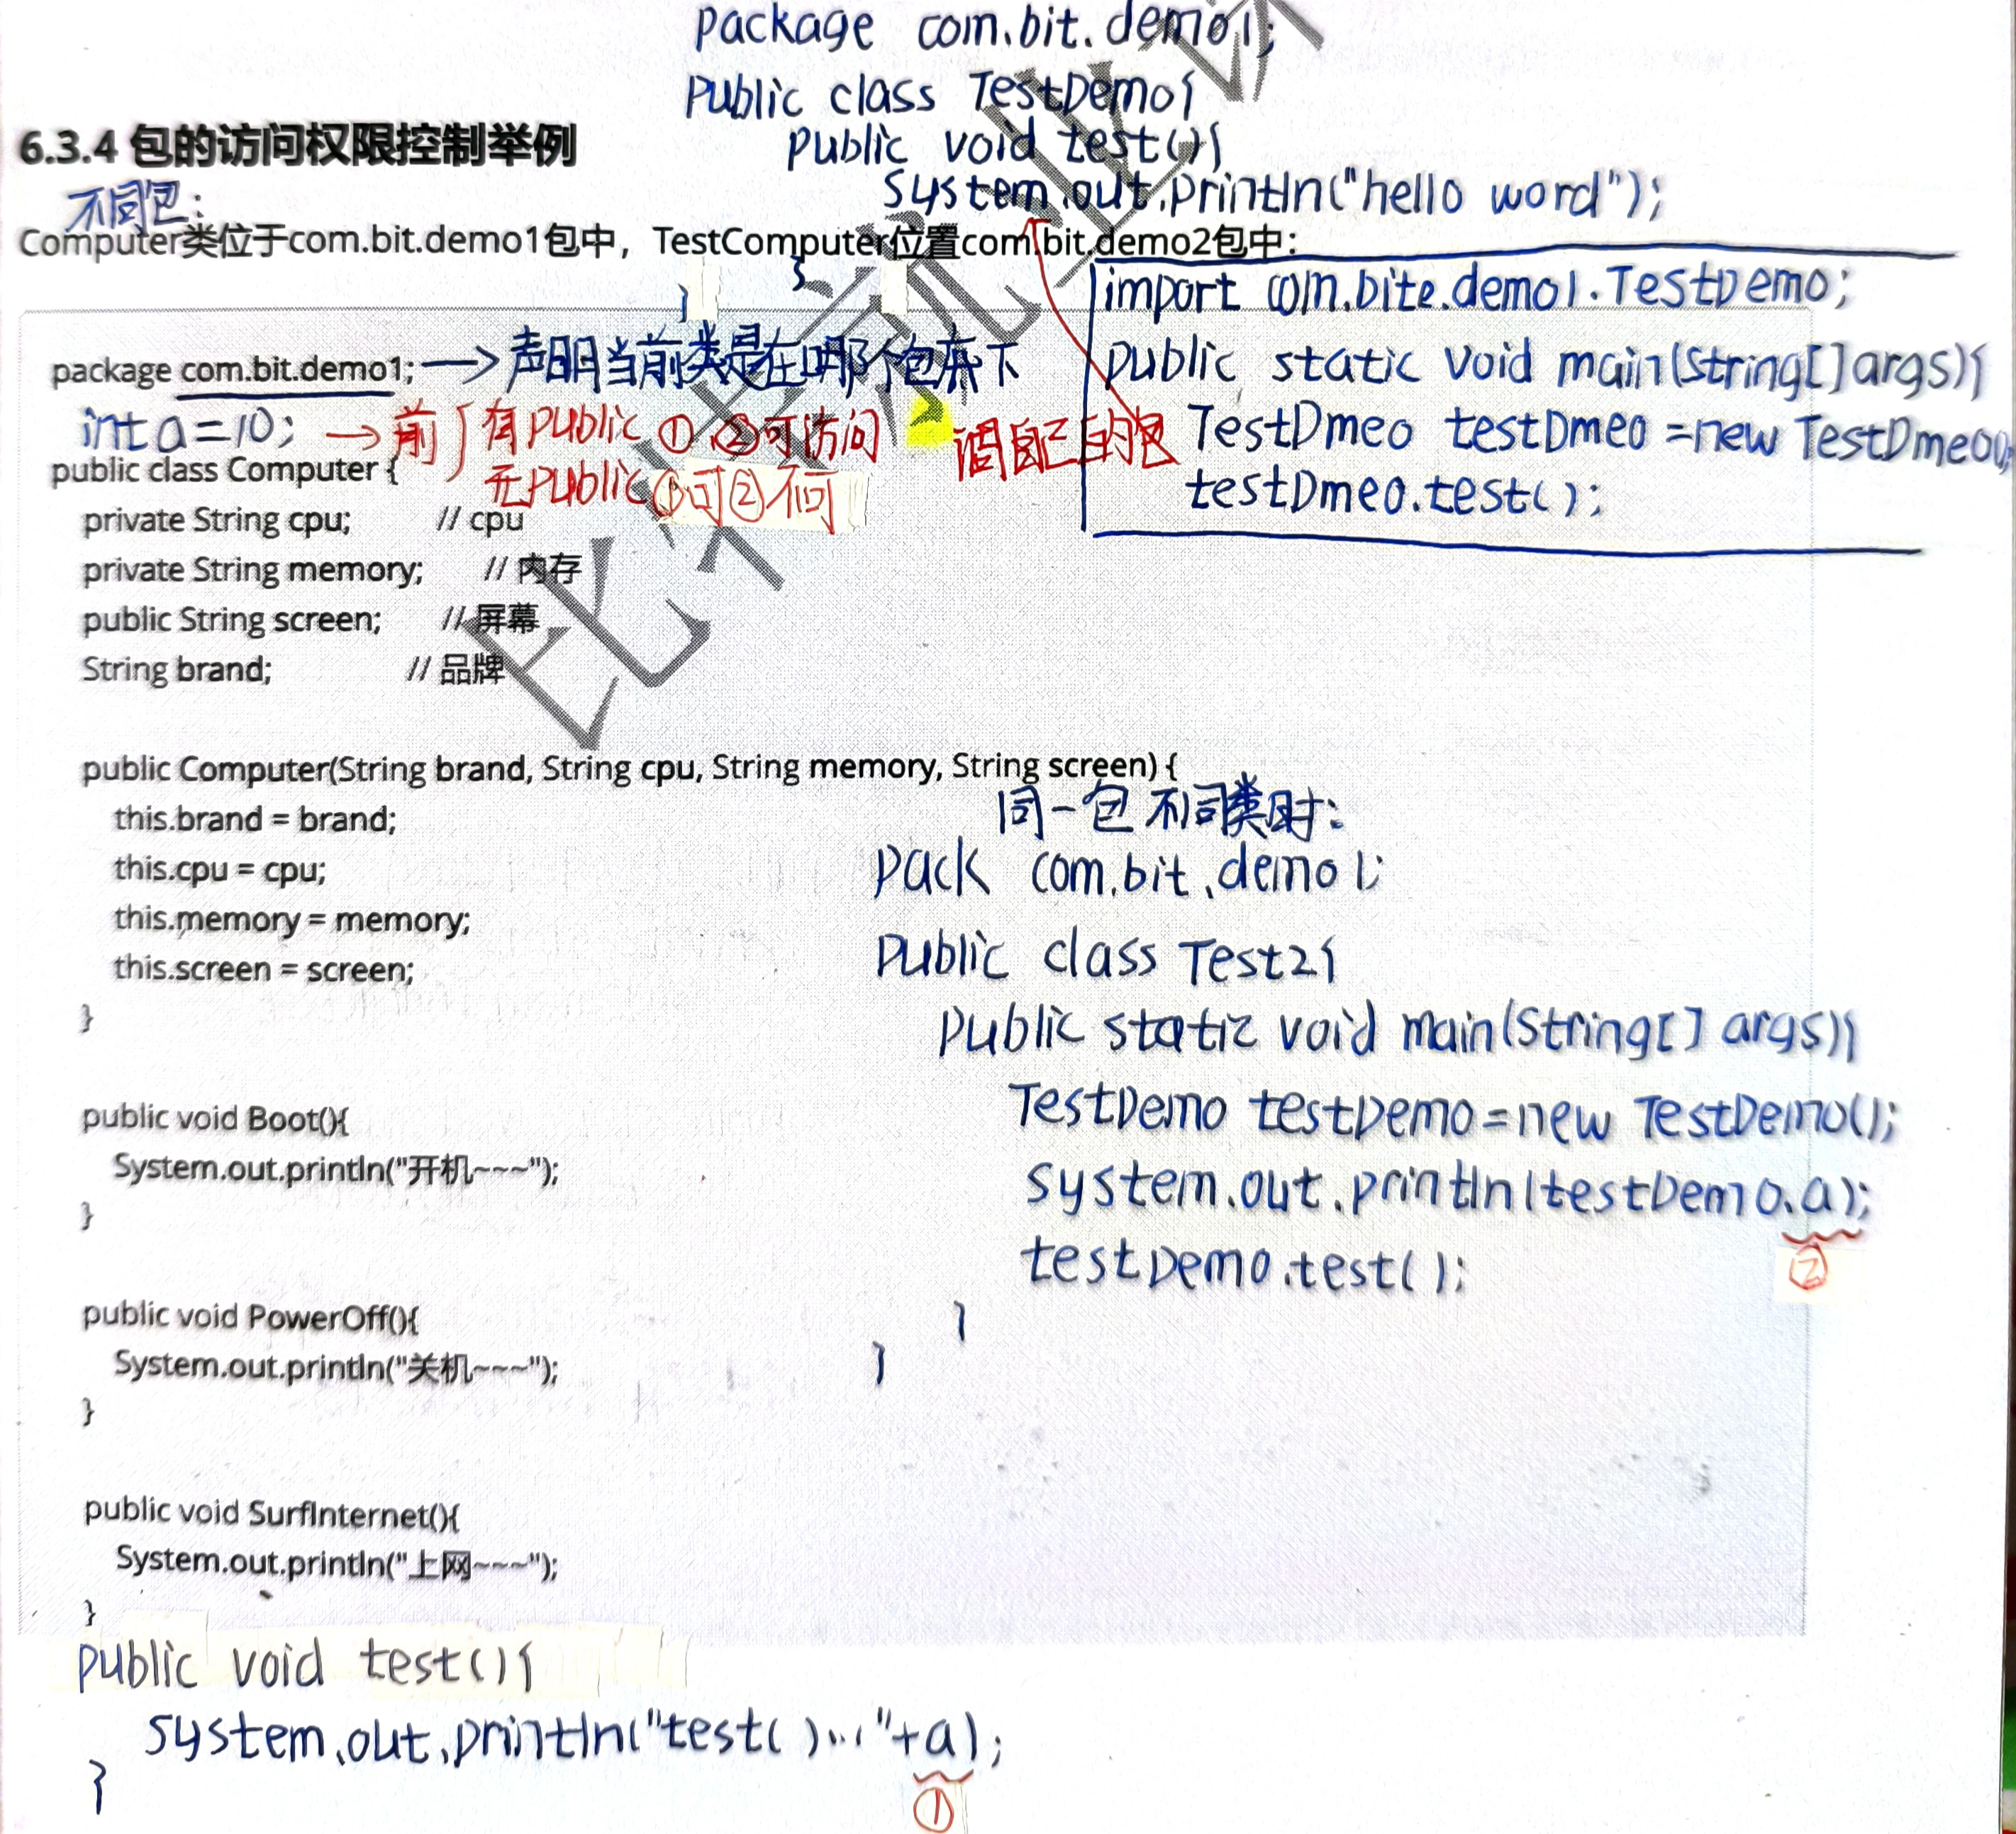 package com.bit.demo1;
public class TestDemo{
public void test(){
System.out.println("hello word");
}
}
6.3.4 包的访问权限控制举例
不同包:
Computer类位于com.bit.demo1包中，TestComputer位置com.bit.demo2包中：
import com.bite.demo1.TestDemo;
public static void main(String[]args){
TestDmeo testDmeo =new TestDmeo();
testDmeo.test();
调自己的包
package com.bit.demo1; → 声明当前类是在哪个包底下
int a=10; → 前{有public ①、②可访问
无public①可②不可
public class Computer {
private String cpu; // cpu
private String memory; // 内存
public String screen; // 屏幕
String brand; // 品牌
public Computer(String brand, String cpu, String memory, String screen) {
this.brand = brand;
this.cpu = cpu;
this.memory = memory;
this.screen = screen;
}
public void Boot(){
System.out.println("开机~~~");
}
public void PowerOff(){
System.out.println("关机~~~");
}
public void SurfInternet(){
System.out.println("上网~~~");
}
public void test(){
System.out.println("test()..."+a);
①
}
同一包不同类时:
pack com.bit.demo1;
public class Test2{
public static void main(String[] args){
TestDemo testDemo=new TestDemo();
System.out.println(testDemo.a);
②
testDemo.test();
}
}